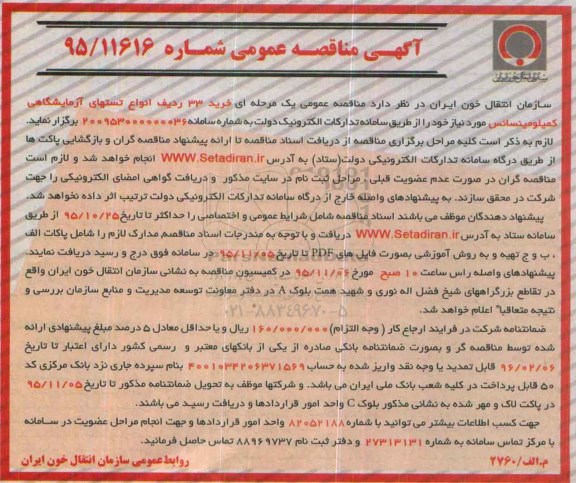 آگهی مناقصه عمومی شماره ۹۵/۱۱۶۱۶
سازمان انتقال خون ایران
سازمان انتقال خون ایران در نظر دارد مناقصه عمومی یک مرحله ای خرید ۳۳ ردیف انواع تستهای آزمایشگاهی
کمیلومینسانس مورد نیاز خود را از طریق سامانه تدارکات الکترونیک دولت به شماره سامانه ۲۰۰۹۵۳۰۰۰۰۰۰۰۳۶ برگزار نماید.
لازم به ذکر است کلیه مراحل برگزاری مناقصه از دریافت اسناد مناقصه تا ارائه پیشنهاد مناقصه گران و بازگشایی پاکت ها
از طریق درگاه سامانه تدارکات الکترونیکی دولت(ستاد) به آدرس WWW.Setadiran.ir انجام خواهد شد و لازم است
مناقصه گران در صورت عدم عضویت قبلی ، مراحل ثبت نام در سایت مذکور و دریافت گواهی امضای الکترونیکی را جهت
شرکت در محقق سازند. به پیشنهادهای واصله خارج از درگاه سامانه تدارکات الکترونیکی دولت ترتیب اثر داده نخواهد شد.
پیشنهاد دهندگان موظف می باشند اسناد مناقصه شامل شرایط عمومی و اختصاصی را حداکثر تا تاریخ ۹۵/۱۰/۲۵ از طریق
سامانه ستاد به آدرس WWW.Setadiran.ir دریافت و با توجه به مندرجات اسناد مناقصه، مدارک لازم را شامل پاکات الف
، ب و ج تهیه و به روش آموزشی بصورت فایل های PDF تا تاریخ ۹۵/۱۱/۰۵ در سامانه فوق درج و رسید دریافت نمایند.
پیشنهادهای واصله راس ساعت ۱۰ صبح مورخ ۹۵/۱۱/۰۶ در کمیسیون مناقصه به نشانی سازمان انتقال خون ایران واقع
در تقاطع بزرگراههای شیخ فضل اله نوری و شهید همت بلوک A در دفتر معاونت توسعه مدیریت و منابع سازمان بررسی و
نتیجه متعاقبا" اعلام خواهد شد.
ضمانتنامه شرکت در فرایند ارجاع کار ( وجه التزام) ۱۶۰/۰۰۰/۰۰۰ ریال و یا حداقل معادل ۵ درصد مبلغ پیشنهادی ارائه
شده توسط مناقصه گر و بصورت ضمانتنامه بانکی صادره از یکی از بانکهای معتبر و رسمی کشور دارای اعتبار تا تاریخ
۹۶/۰۲/۰۶ قابل تمدید یا وجه نقد واریز شده به حساب ۴۰۰۱۰۳۴۲۰۶۳۷۱۵۶۹ بنام سپرده جاری نزد بانک مرکزی کد
۵۰ قابل پرداخت در کلیه شعب بانک ملی ایران می باشد. و شرکتها موظف به تحویل ضمانتنامه مذکور تا تاریخ ۹۵/۱۱/۰۵
در پاکت لاک و مهر شده به نشانی مذکور بلوک C واحد امور قراردادها و دریافت رسید می باشند.
جهت کسب اطلاعات بیشتر می توانید با شماره ۸۲۰۵۲۱۸۸ واحد امور قراردادها و جهت انجام مراحل عضویت در سامانه
با مرکز تماس سامانه به شماره ۲۷۳۱۳۱۳۱ و دفتر ثبت نام ۸۸۹۶۹۷۳۷ تماس حاصل فرمائید.
م.الف/۲۷۶۰ روابط عمومی سازمان انتقال خون ایران